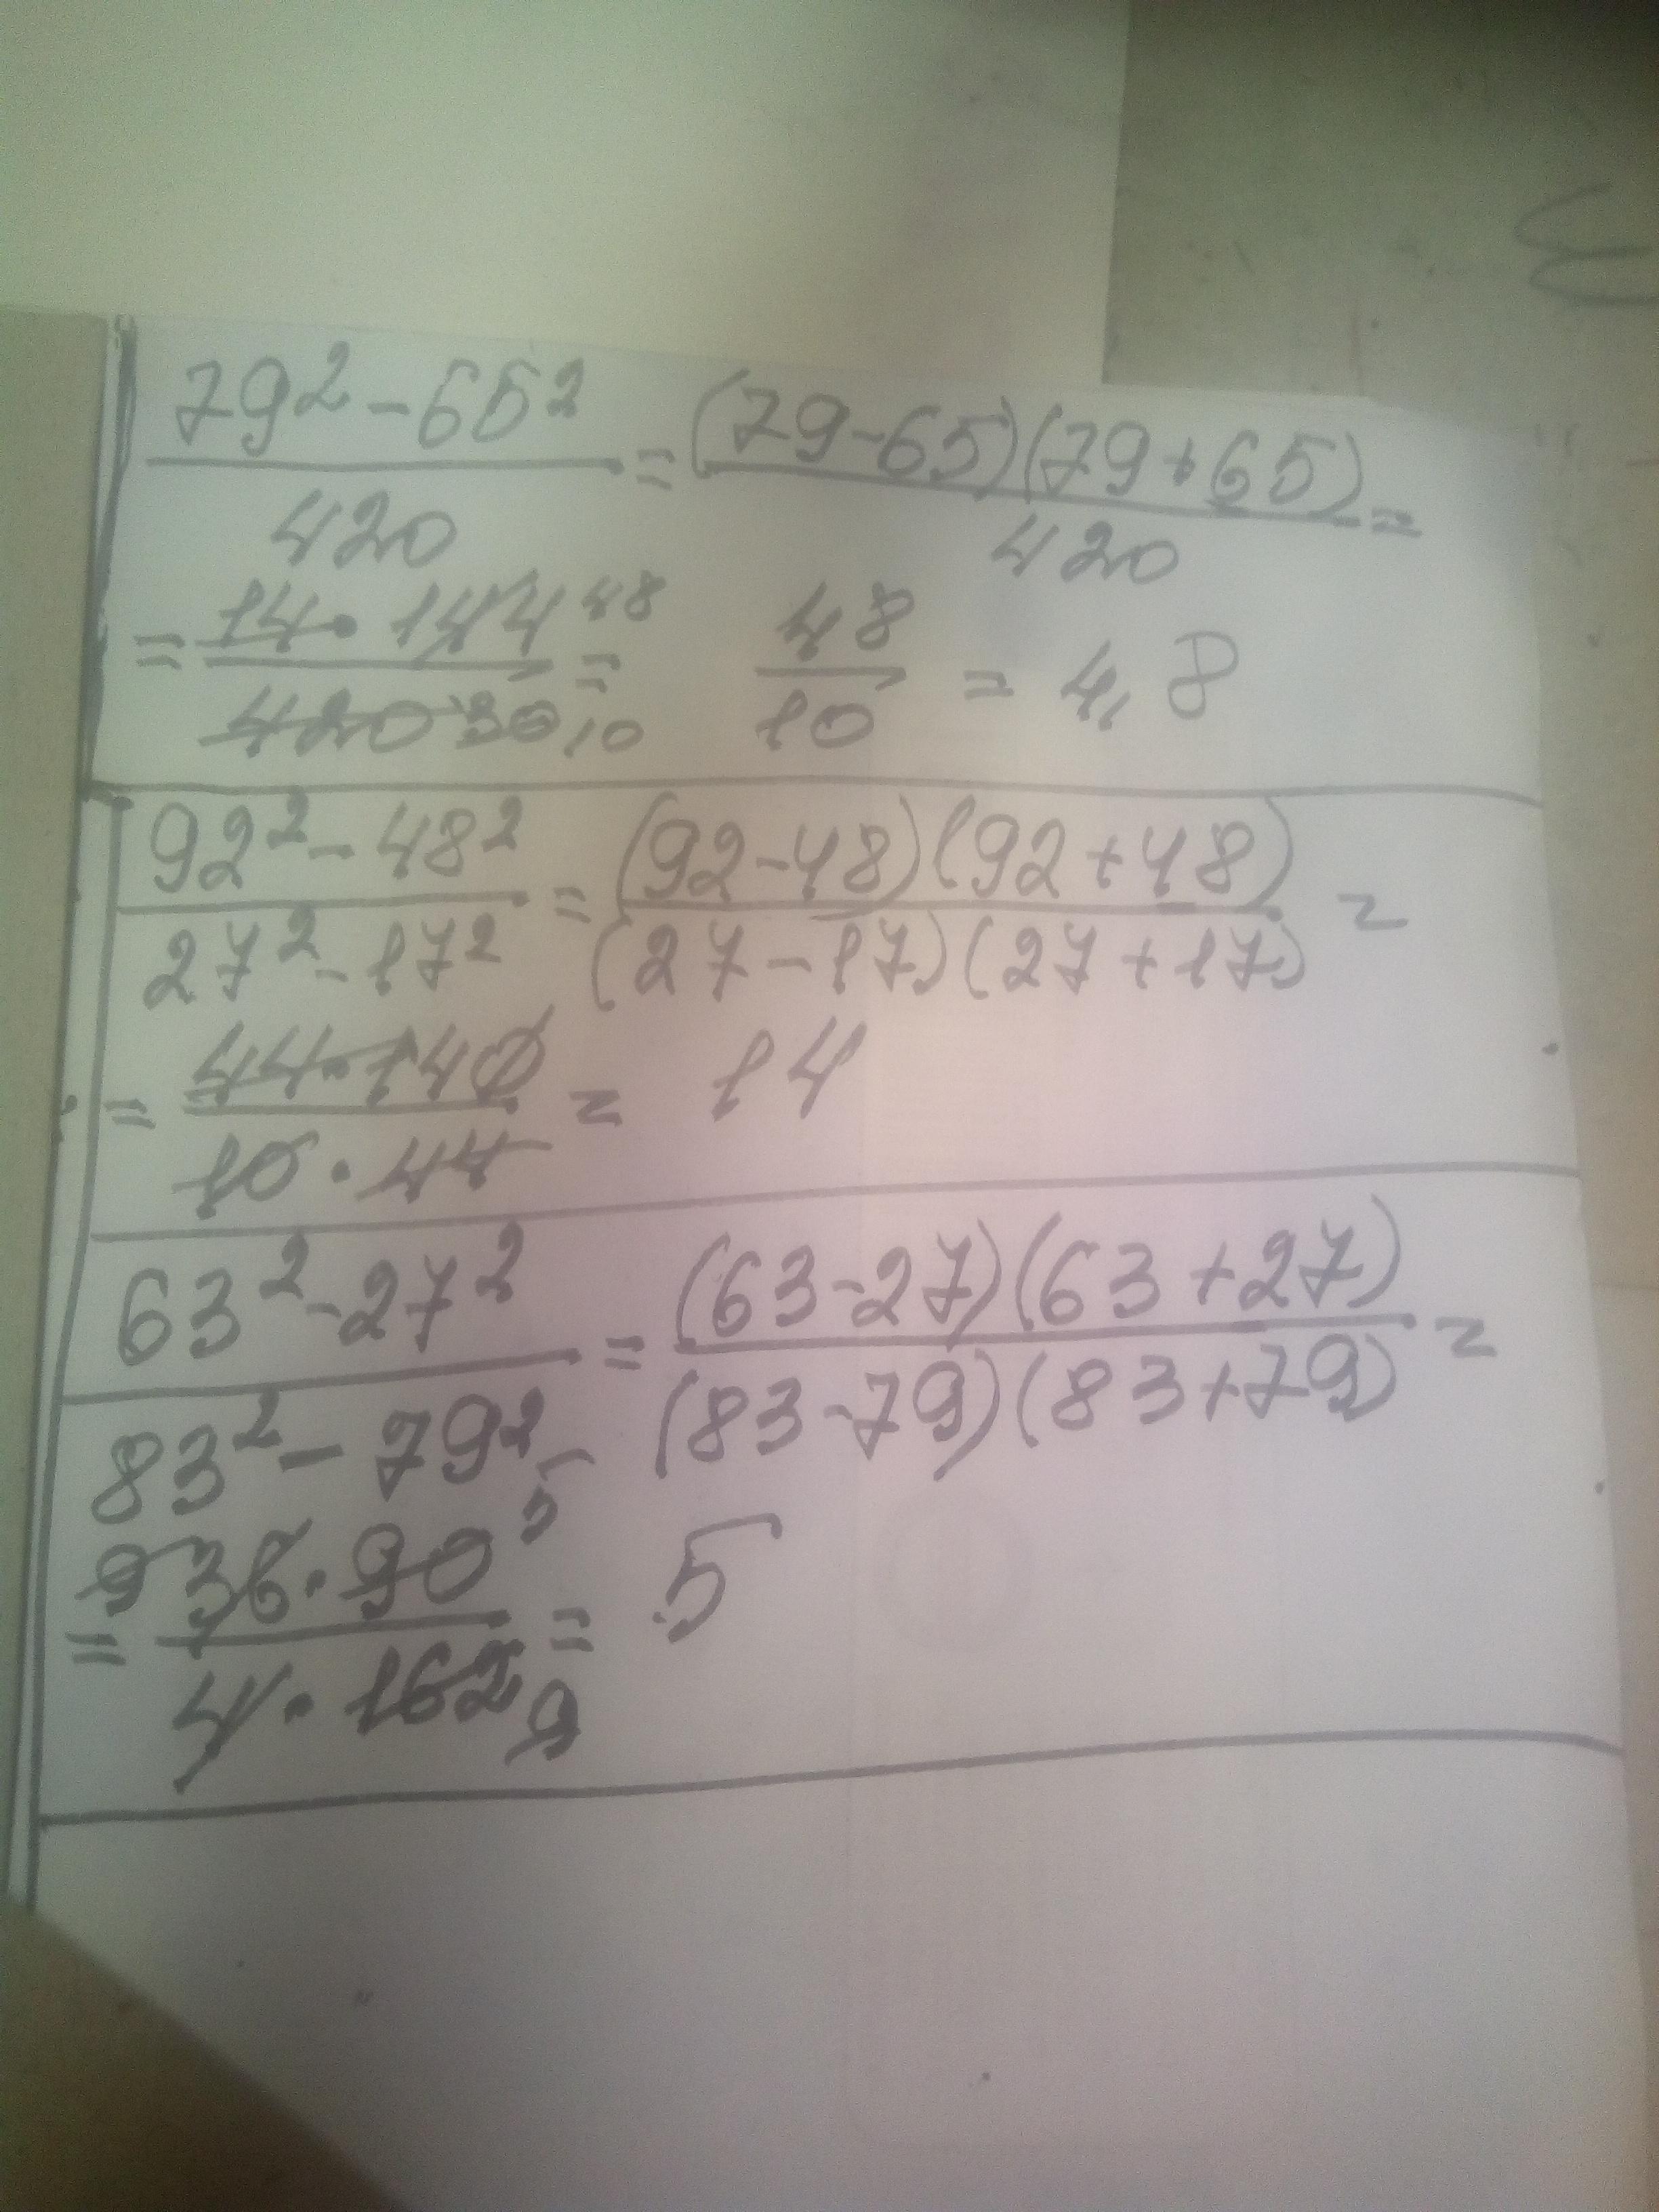 79² - 65² / 420 = (79-65)(79+65) / 420 =
= 14 · 144 48 / 420 30 10 = 48 / 10 = 4,8
92² - 48² / 27² - 17² = (92-48)(92+48) / (27-17)(27+17) =
= 44 · 140 / 10 · 44 = 14
63² - 27² / 83² - 79² = (63-27)(63+27) / (83-79)(83+79) =
= 9 36 · 90 5 / 4 · 162 9 = 5